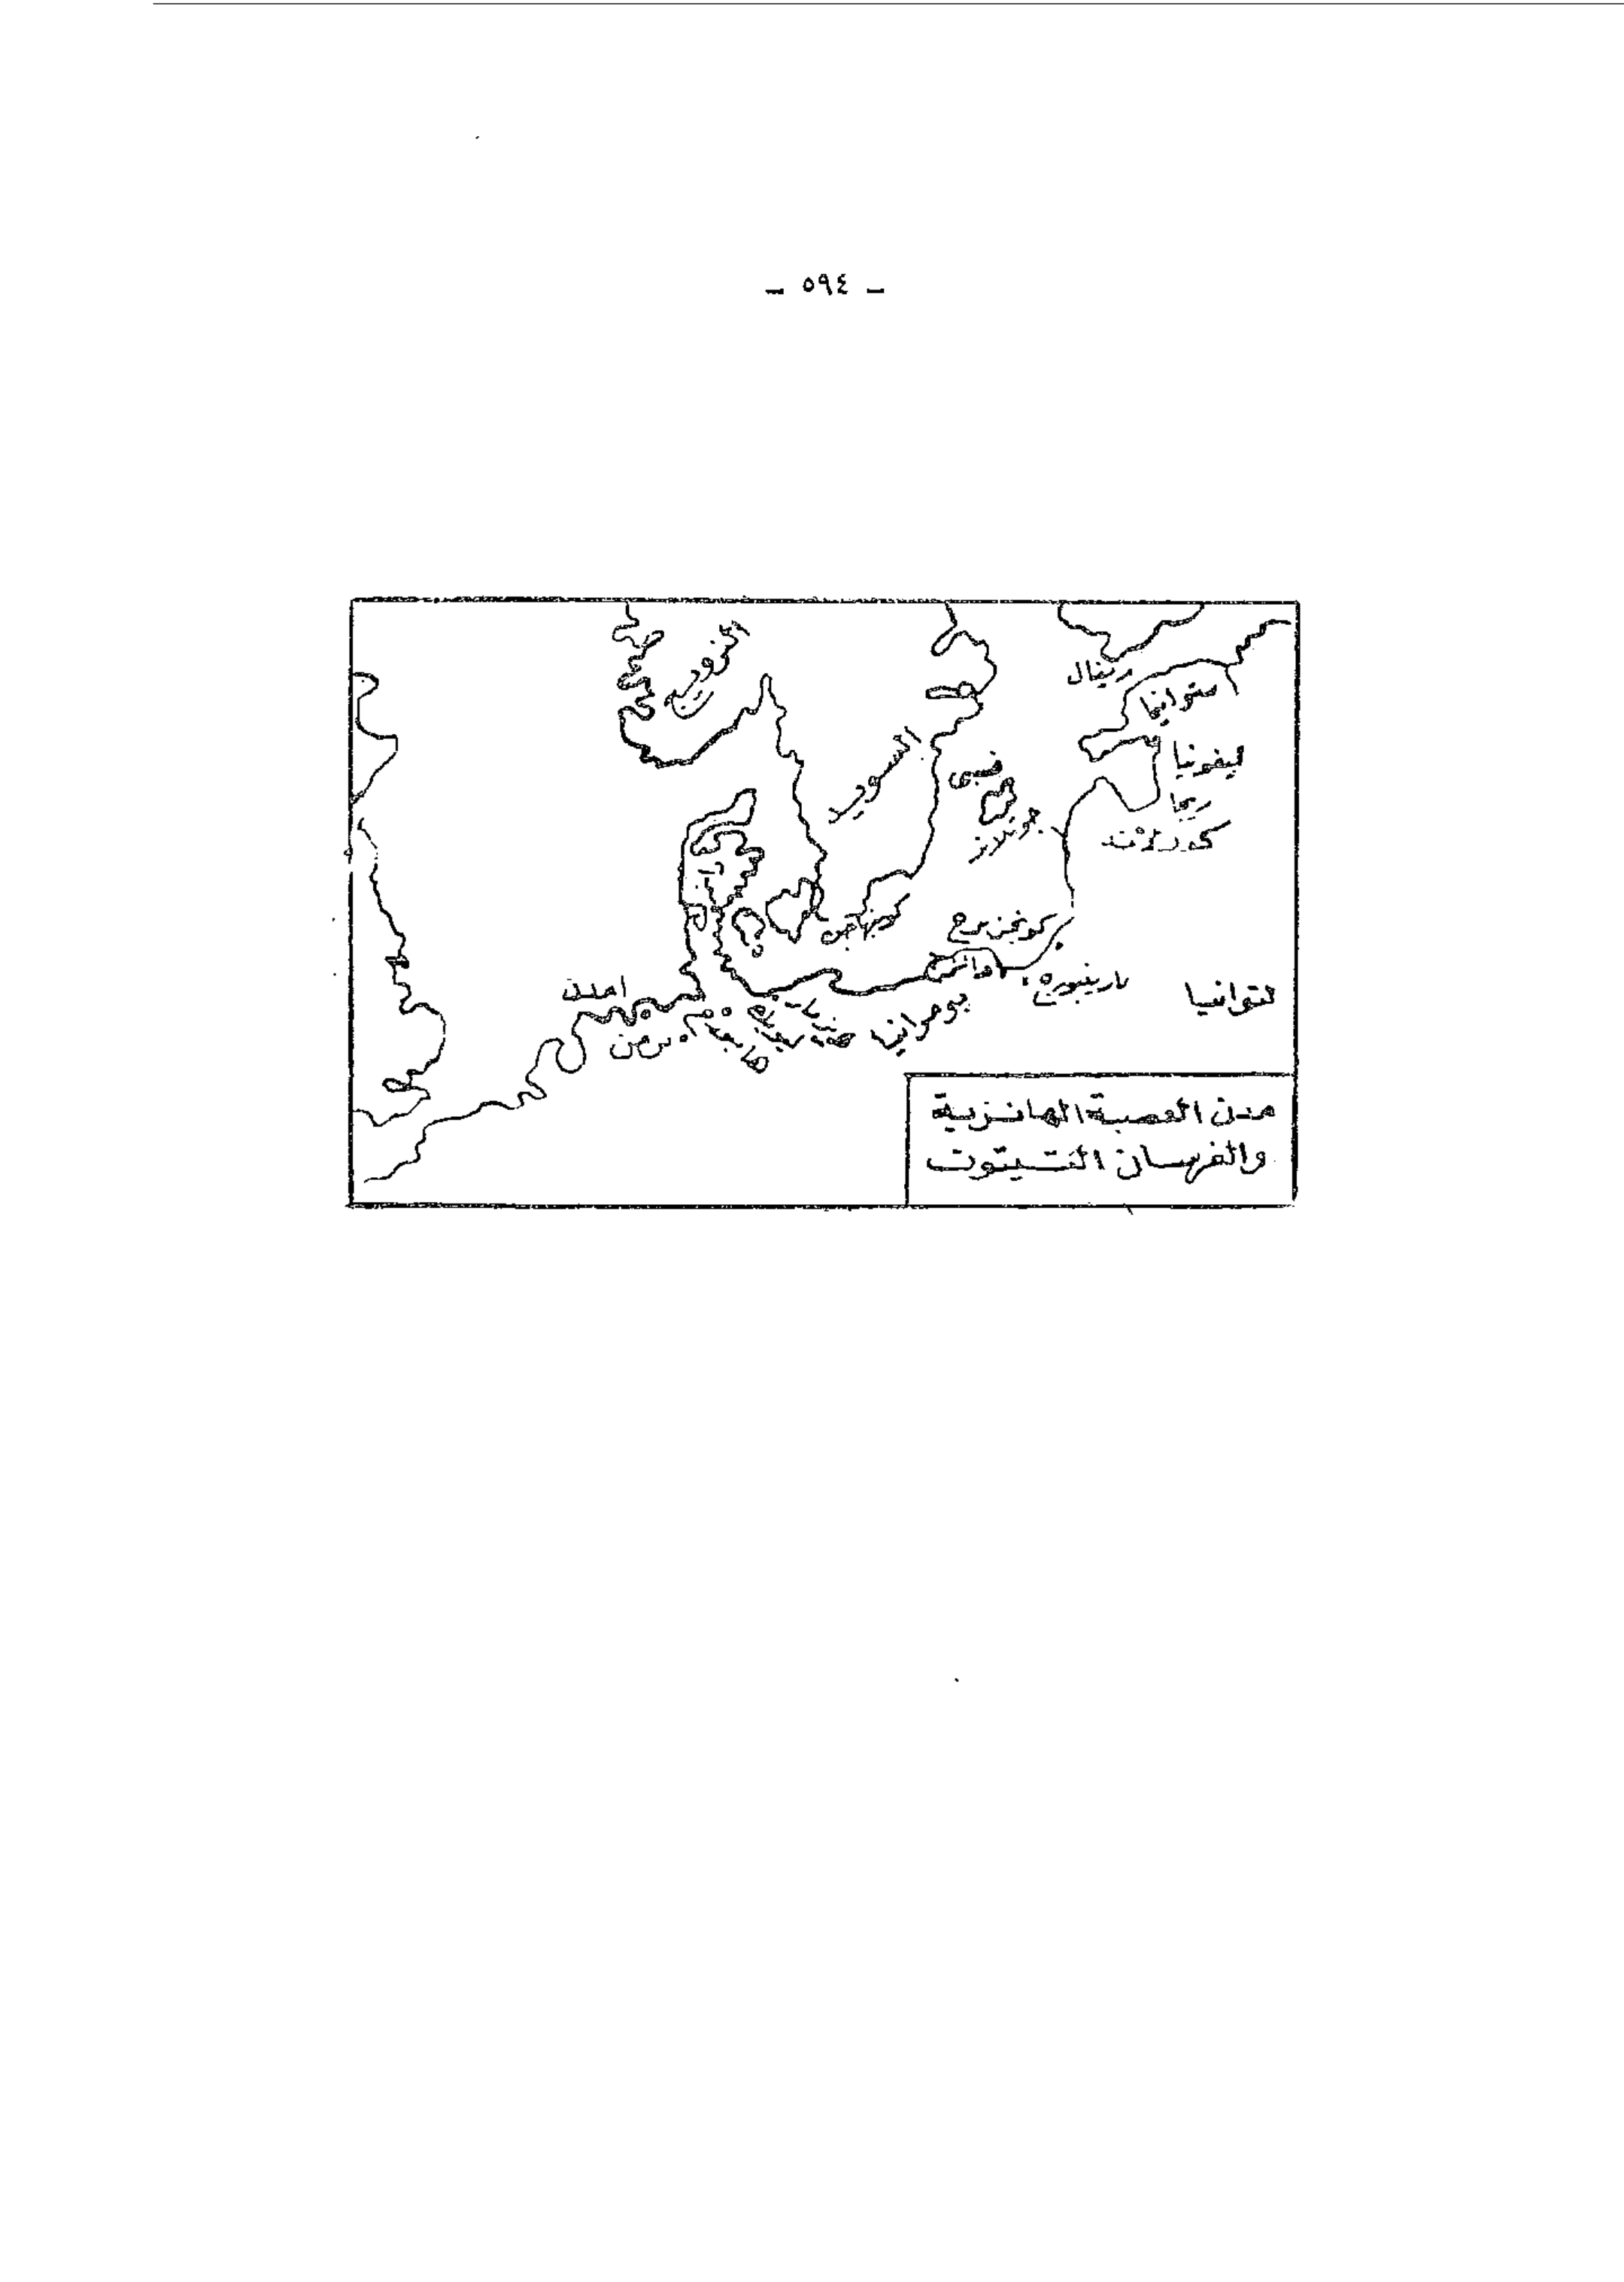 — ٥٩٤ —
النرويج
السويد
ريفال
استوانيا
ليفونيا
ريجا
كورلاند
فسبى
جوتلاند
كوبنهاجن
كونجزبرج
دانزج
مارينبورج
لتوانيا
بومرانيا
امدن
برمن
مدن العصبة الهانزية
والفرسان التيتوت